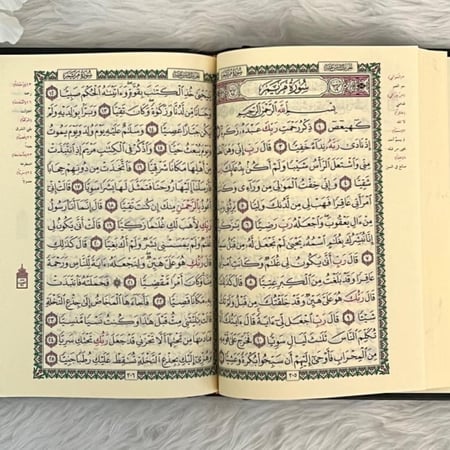 سُورَةُ مَرْيَمَ
بِسْمِ اللَّهِ الرَّحْمَٰنِ الرَّحِيمِ
كٓهيعٓصٓ ١ ذِكْرُ رَحْمَتِ رَبِّكَ عَبْدَهُۥ زَكَرِيَّآ ٢
إِذْ نَادَىٰ رَبَّهُۥ نِدَآءً خَفِيًّا ٣ قَالَ رَبِّ إِنِّى وَهَنَ ٱلْعَظْمُ
مِنِّى وَٱشْتَعَلَ ٱلرَّأْسُ شَيْبًا وَلَمْ أَكُنۢ بِدُعَآئِكَ رَبِّ
شَقِيًّا ٤ وَإِنِّى خِفْتُ ٱلْمَوَٰلِىَ مِن وَرَآءِى وَكَانَتِ
ٱمْرَأَتِى عَاقِرًا فَهَبْ لِى مِن لَّدُنكَ وَلِيًّا ٥ يَرِثُنِى وَيَرِثُ
مِنْ ءَالِ يَعْقُوبَ وَٱجْعَلْهُ رَبِّ رَضِيًّا ٦ يَٰزَكَرِيَّآ
إِنَّا نُبَشِّرُكَ بِغُلَٰمٍ ٱسْمُهُۥ يَحْيَىٰ لَمْ نَجْعَل لَّهُۥ مِن قَبْلُ سَمِيًّا
٧ قَالَ رَبِّ أَنَّىٰ يَكُونُ لِى غُلَٰمٌ وَكَانَتِ ٱمْرَأَتِى
عَاقِرًا وَقَدْ بَلَغْتُ مِنَ ٱلْكِبَرِ عِتِيًّا ٨ قَالَ كَذَٰلِكَ
قَالَ رَبُّكَ هُوَ عَلَىَّ هَيِّنٌ وَقَدْ خَلَقْتُكَ مِن قَبْلُ وَلَمْ تَكُ
شَيْـًٔا ٩ قَالَ رَبِّ ٱجْعَل لِّىٓ ءَايَةً قَالَ ءَايَتُكَ أَلَّا
تُكَلِّمَ ٱلنَّاسَ ثَلَٰثَ لَيَالٍ سَوِيًّا ١٠ فَخَرَجَ عَلَىٰ قَوْمِهِۦ
مِنَ ٱلْمِحْرَابِ فَأَوْحَىٰٓ إِلَيْهِمْ أَن سَبِّحُوا۟ بُكْرَةً وَعَشِيًّا ١١
٣٠٥
سُورَةُ مَرْيَمَ
يَٰيَحْيَىٰ خُذِ ٱلْكِتَٰبَ بِقُوَّةٍ وَءَاتَيْنَٰهُ ٱلْحُكْمَ صَبِيًّا ١٢
وَحَنَانًا مِّن لَّدُنَّا وَزَكَوٰةً وَكَانَ تَقِيًّا ١٣ وَبَرًّۢا بِوَٰلِدَيْهِ وَلَمْ
يَكُن جَبَّارًا عَصِيًّا ١٤ وَسَلَٰمٌ عَلَيْهِ يَوْمَ وُلِدَ وَيَوْمَ يَمُوتُ
وَيَوْمَ يُبْعَثُ حَيًّا ١٥ وَٱذْكُرْ فِى ٱلْكِتَٰبِ مَرْيَمَ إِذِ ٱنتَبَذَتْ
مِنْ أَهْلِهَا مَكَانًا شَرْقِيًّا ١٦ فَٱتَّخَذَتْ مِن دُونِهِمْ حِجَابًا
فَأَرْسَلْنَآ إِلَيْهَا رُوحَنَا فَتَمَثَّلَ لَهَا بَشَرًا سَوِيًّا ١٧ قَالَتْ إِنِّىٓ
أَعُوذُ بِٱلرَّحْمَٰنِ مِنكَ إِن كُنتَ تَقِيًّا ١٨ قَالَ إِنَّمَآ أَنَا۠ رَسُولُ
رَبِّكِ لِأَهَبَ لَكِ غُلَٰمًا زَكِيًّا ١٩ قَالَتْ أَنَّىٰ يَكُونُ لِى
غُلَٰمٌ وَلَمْ يَمْسَسْنِى بَشَرٌ وَلَمْ أَكُ بَغِيًّا ٢٠ قَالَ كَذَٰلِكِ
قَالَ رَبُّكِ هُوَ عَلَىَّ هَيِّنٌ وَلِنَجْعَلَهُۥٓ ءَايَةً لِّلنَّاسِ وَرَحْمَةً
مِّنَّا وَكَانَ أَمْرًا مَّقْضِيًّا ٢١ فَحَمَلَتْهُ فَٱنتَبَذَتْ
بِهِۦ مَكَانًا قَصِيًّا ٢٢ فَأَجَآءَهَا ٱلْمَخَاضُ إِلَىٰ جِذْعِ ٱلنَّخْلَةِ
قَالَتْ يَٰلَيْتَنِى مِتُّ قَبْلَ هَٰذَا وَكُنتُ نَسْيًا مَّنسِيًّا ٢٣
فَنَادَىٰهَا مِن تَحْتِهَآ أَلَّا تَحْزَنِى قَدْ جَعَلَ رَبُّكِ تَحْتَكِ سَرِيًّا ٢٤
وَهُزِّىٓ إِلَيْكِ بِجِذْعِ ٱلنَّخْلَةِ تُسَٰقِطْ عَلَيْكِ رُطَبًا جَنِيًّا ٢٥
٣٠٦